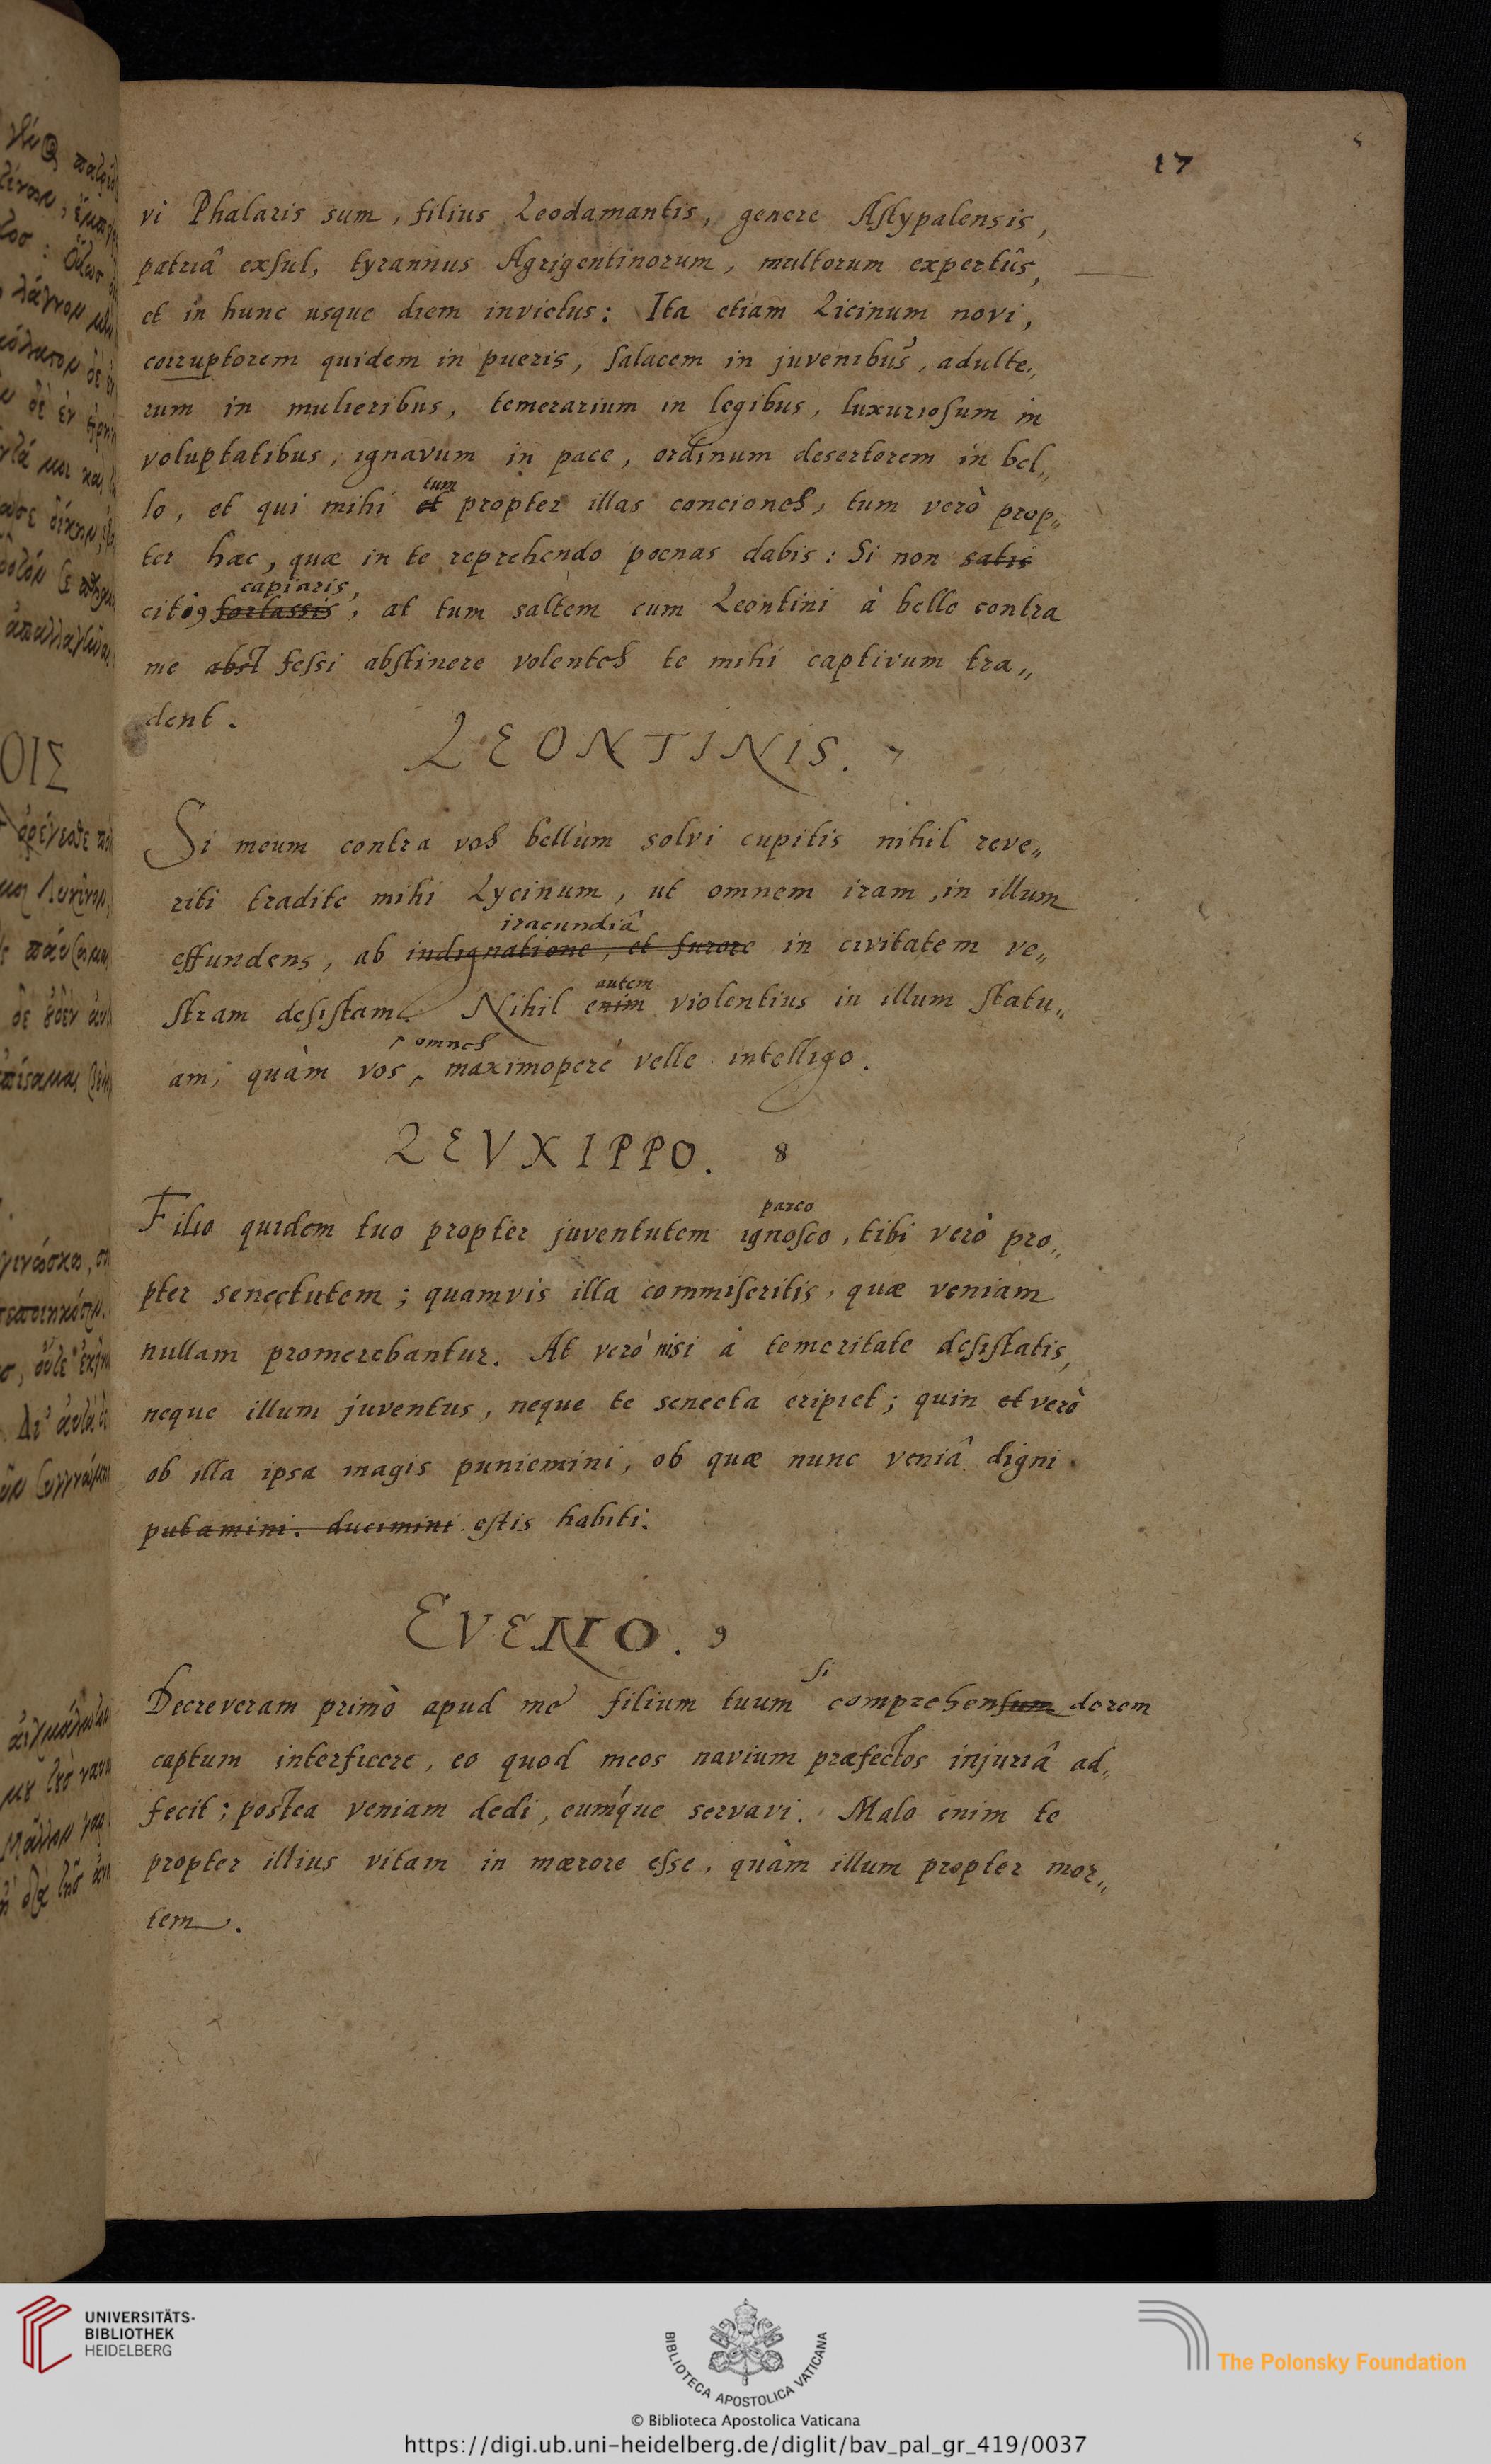 17
vi Phalaris sum, filius Leodamantis, genere Astypalensis,
patriâ exsul, tyrannus Agrigentinorum, multorum expertûs,
et in hunc usque diem invictus: Ita etiam Licinum novi,
corruptorem quidem in pueris, salacem in juvenibus, adulte„
rum in mulieribus, temerarium in legibus, luxuriosum in
voluptatibus, ignavum in pace, ordinum desertorem in bel„
tum
lo, et qui mihi et propter illas conciones, tum verò prop„
ter hæc, quæ in te reprehendo poenas dabis: Si non satis
capiaris,
fortassis, at tum saltem cum Leontini à bello contra
me abst fessi abstinere volentes te mihi captivum tra„
dent.
LEONTINIS. 7
Si meum contra vos bellum solvi cupitis nihil reve„
riti tradite mihi Lycinum, ut omnem iram, in illum
iracundiâ
effundens, ab indignatione, et furore in civitatem ve„
autem
stram desistam. Nihil enim violentius in illum statu„
omnes
am, quàm vos, maximoperè velle intelligo.
LEVXIPPO. 8
parco
Filio quidem tuo propter juventutem ignosco, tibi verò pro„
pter senectutem; quamvis illa commiseritis, quæ veniam
nullam promerebantur. At verò nisi à temeritate desistatis,
neque illum juventus, neque te senecta eripiet; quin et verò
ob illa ipsa magis puniemini, ob quæ nunc veniâ digni
putamini. ducimini estis habiti.
EVENO. 9
si
Decreveram primò apud me filium tuum comprehensum derem
captum interficere, eo quod meos navium præfectos injuriâ ad„
fecit; postea veniam dedi, eumque servavi. Malo enim te
propter illius vitam in mærore esse, quàm illum propter mor„
tem.
UNIVERSITÄTS-
BIBLIOTHEK
HEIDELBERG
BIBLIOTECA APOSTOLICA VATICANA
The Polonsky Foundation
© Biblioteca Apostolica Vaticana
https://digi.ub.uni-heidelberg.de/diglit/bav_pal_gr_419/0037